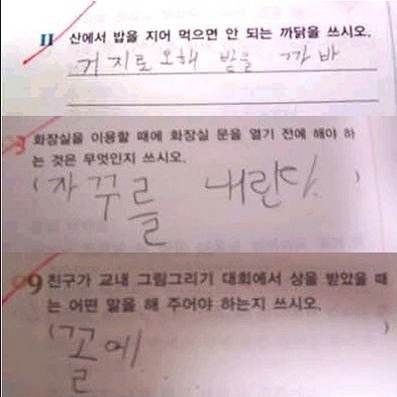 11 산에서 밥을 지어 먹으면 안 되는 까닭을 쓰시오.
거지로 오해 받을 까바
화장실을 이용할 때에 화장실 문을 열기 전에 해야 하
는 것은 무엇인지 쓰시오.
(자꾸를 내린다. )
9 친구가 교내 그림그리기 대회에서 상을 받았을 때
는 어떤 말을 해 주어야 하는지 쓰시오.
(꼴에 )